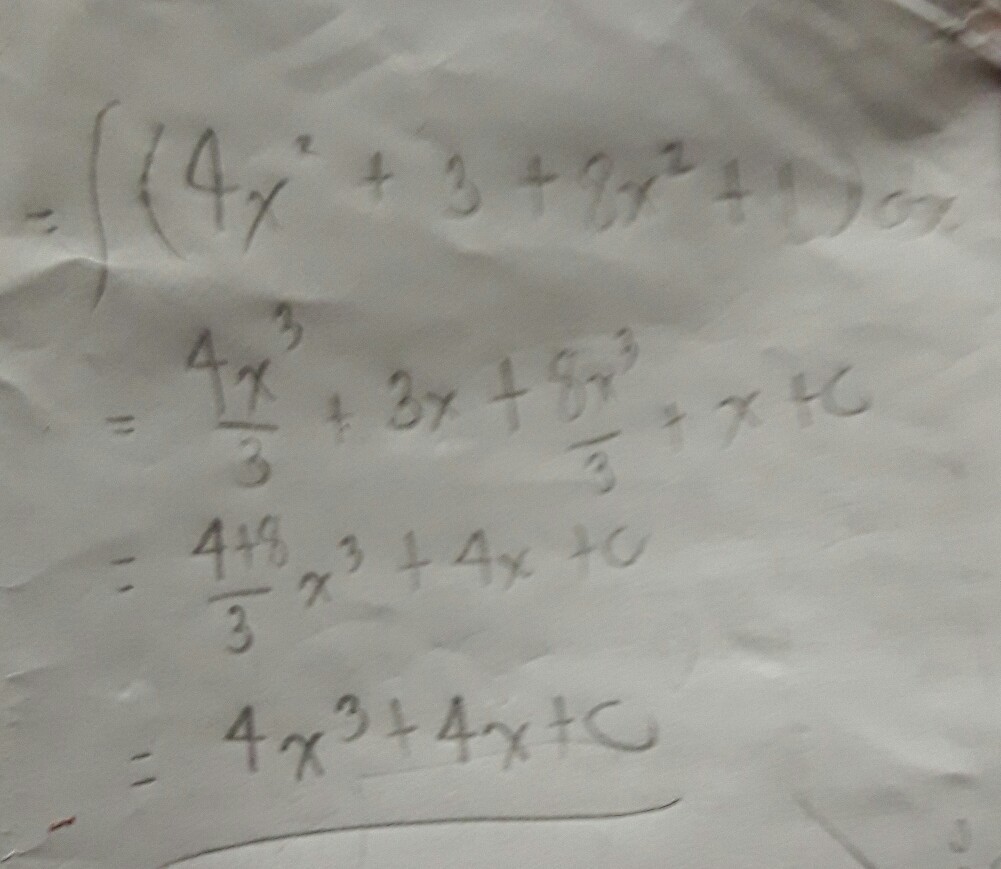 = ∫(4x² + 3 + 8x² + 1)dx
= 4x³/3 + 3x + 8x³/3 + x + C
= (4+8)/3 x³ + 4x + C
= 4x³ + 4x + C